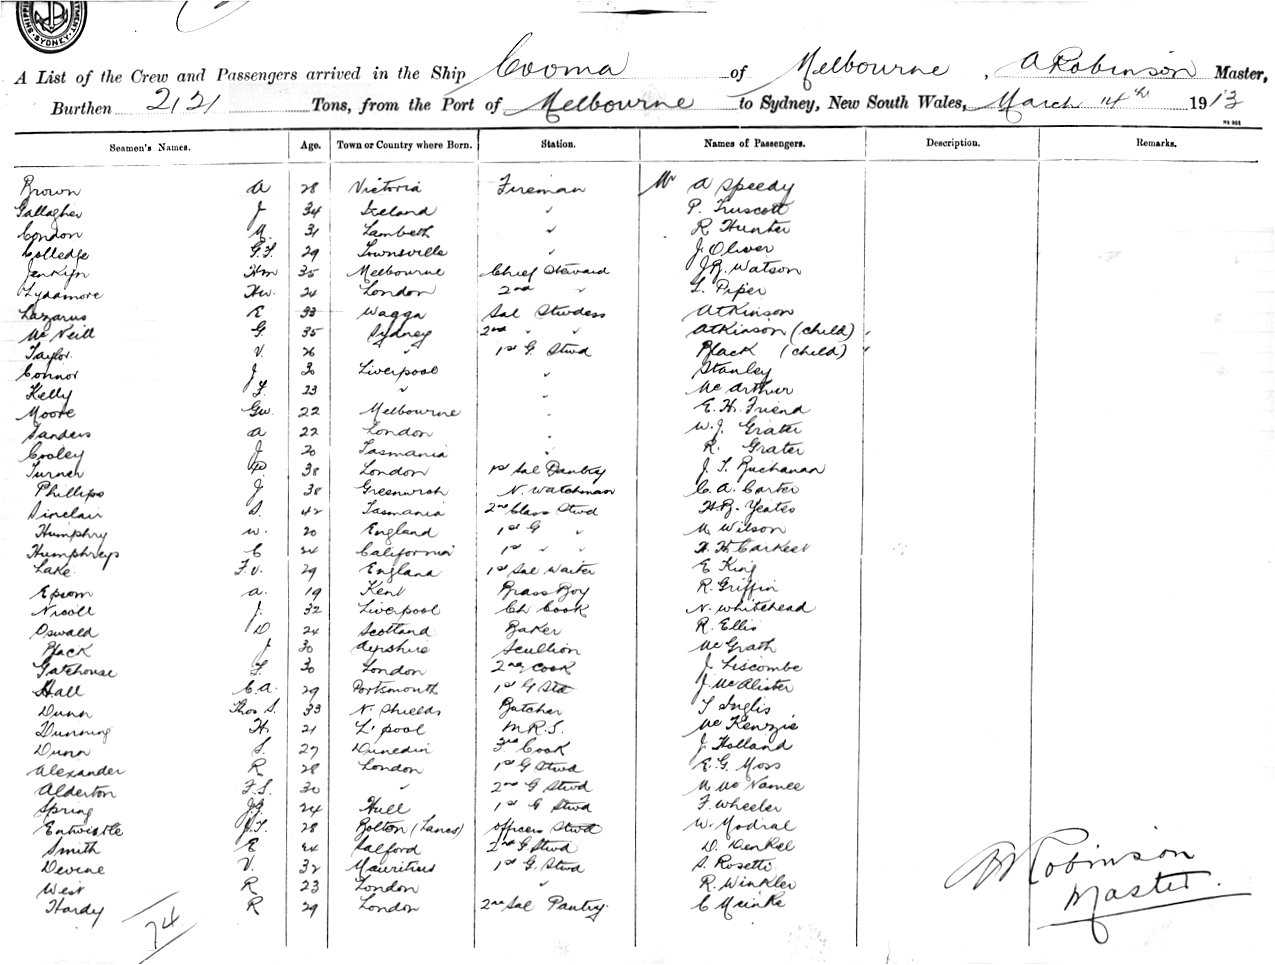 SYDNEY
A List of the Crew and Passengers arrived in the Ship Cooma of Melbourne, A Robinson Master,
Burthen 2121 Tons, from the Port of Melbourne to Sydney, New South Wales, March 14th 1913
Seamen's Names. Age. Town or Country where Born. Station. Names of Passengers. Description. Remarks.
Brown A 28 Victoria Fireman Mr A Speedy
Gallagher J 34 Ireland " P. Truscott
Condon M. 31 Lambeth " R Hunter
Colledge G.F. 29 Townsville " J. Oliver
Jenkyn Hm 35 Melbourne Chief Steward J.R. Watson
Lydamore Hw. 24 London 2nd " L. Piper
Lazarus E 33 Wagga Sal Stwdess Atkinson
McNeill G. 35 Sydney 2nd " " Atkinson (child)
Taylor V. 26 " 1st G. Stwd Black (child)
Connor J 30 Liverpool " Stanley
Kelly F. 23 " " McArthur
Moore Gw. 22 Melbourne " E. H. Friend
Sanders A 22 London " W. J. Grater
Cooley J 20 Tasmania " R. Grater
Turner P. 38 London 1st Sal Pantry J. T. Buchanan
Phillips J 38 Greenwich N. Watchman C. A. Carter
Sinclair S. 42 Tasmania 2nd Class Stwd H.R. Yeates
Humphry W. 20 England 1st G " M Wilson
Humphreys C 24 California 1st " " H. H. Carkeet
Lake F.V. 29 England 1st Sal Waiter E King
Epsom A. 19 Kent Brass Boy R. Griffin
Nicoll J. 32 Liverpool Ch Cook N. Whitehead
Oswald D 24 Scotland Baker R. Ellis
Black J 30 Ayrshire Scullion McGrath
Gatehouse F. 30 London 2nd Cook J. Liscombe
Hall C.A. 29 Portsmouth 1st G Std J. McAlister
Dunn Thos S. 33 N. Shields Butcher T Inglis
Dunning H. 21 L'pool M.R.S. McKenzie
Dunn S. 27 Dunedin 3rd Cook J. Holland
Alexander R 28 London 1st G Stwd E. G. Moss
Alderton F.S. 30 " 2nd G Stwd M McNamee
Spring J.G. 24 Hull 1st G Stwd F. Wheeler
Entwistle J.T. 28 Bolton (Lancs) Officers Stwd W. Modral
Smith E 24 Salford 2nd G Stwd D. Denkel
Devine V. 32 Mauritius 1st G. Stwd S. Rosetti
West R 23 London " R. Winkler
Hardy R 29 London 2nd Sal Pantry C Meinke
74
A Robinson
Master.